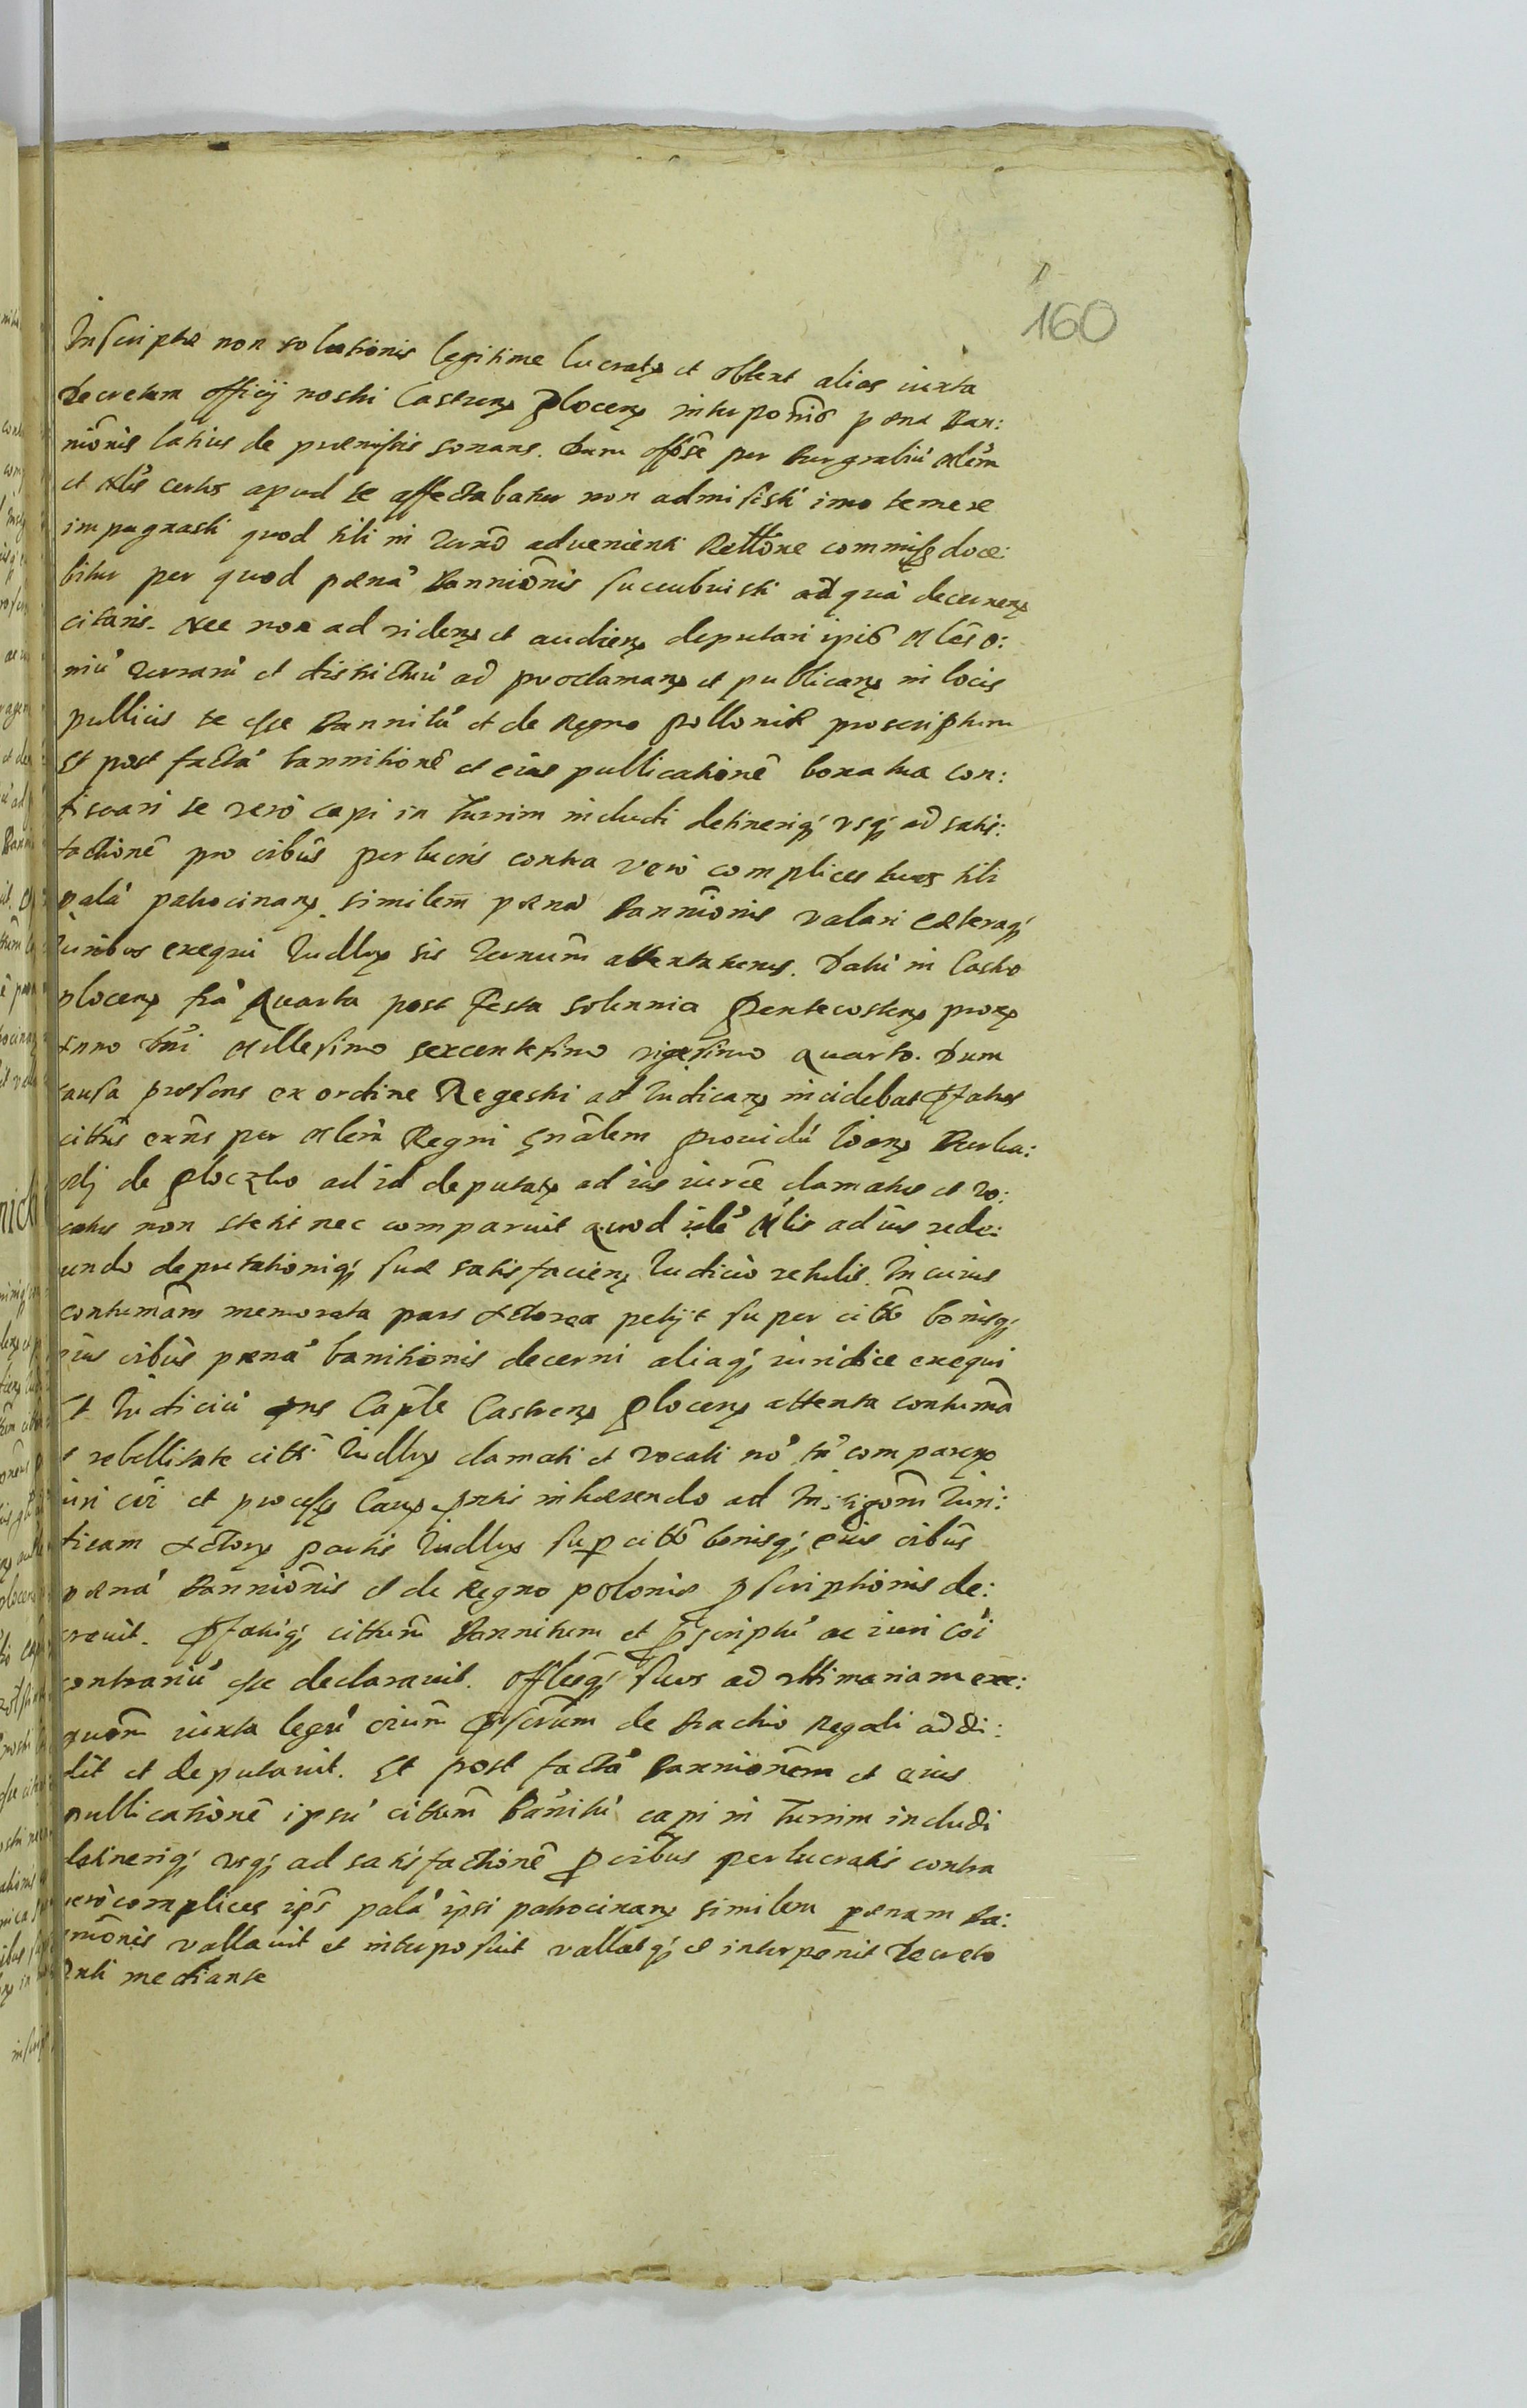 160
Inscriptae non solutionis legitime lucratę et obtent alias iuxta
Decretum officij nostri Castreñ Plocenę interpoñis poena Ban:
niõnis latius de praemissis sonans. Dum offõse per Burgrabiũ Mlẽm
et Nlẽs certos apud te affectabatur non admisisti imo temere
impugnasti quod tibi in Termõ advenienti Rellõne commissę doce:
bitur per quod poenã Banniõnis succubuisti ad quã decernenę
citaris. Nec non ad videnę et audienę deputari ipiõ Mlẽs o:
niũ Terrarũ et districtuũ ad proclamanę et publicanę in locis
publicis te esse Bannitũ et de Regno Polloniae proscriptum
Et post factã bannitionẽ et eius publicationẽ bona tua con:
fiscari te verò capi in Turrim includi detinerique usque ad satis:
factionẽ pro oĩbus perlucris contra verò complices tuos tibi
palã patrocinanę similem poenã Banniõnis valari caeteraque
Iuribus exequi Iudlr̃ sis Termiñ attentaturus. Datũ in Castro
Plocenę fr̃a Quarta post Festa solennia Pentecostenę proxę
Anno Dñi Millesimo sexcentesimo vigesimo quarto. Dum
causa praesens ex ordine Regestri ad Iudicanę incidebat Pfatus
cittũs exñs per Mlẽm Regni gñalem Providũ Ioanę Burba:
de Ploczko ad id deputatę ad ius iurẽ clamatus et vo:
catus non stetit nec comparuit quod idẽ Mlis ad ius redẽ:
undo deputationique suae satisfacienę Iudiciò retulit. In cuius
contumãm memorata pars Actorea petijt super citto bonisque
eius oĩbus poenã banitionis decerni aliaque iuridice exequi
Et Iudiciũ pñs Capitle Castrenę Plocenę attenta contumã
et rebellitate citti Iudlr̃ clamati et vocati nõ tñ comparenę
iuri cõi et processę Causę pñtis inhaerendo ad Instigõm Iuri:
dicam Actorę Partis Iudlr̃ sup citto bonisque eius oĩbus
poenã Banniõnis et de Regno Polonię pscriptionis de:
crevit. Pfatique cittum Bannitum et pscriptũ ac iuri cõi
contrariũ esse declaravit. Offleque suos ad ultimariam exe:
quõm iuxta legũ oĩum pscrum de Brachio Regali addi:
dit et deputavit. Et post factã Banniõnem et eius
publicationẽ ipsũ cittum Bañitũ capi in Turrim includi
detinerique usque ad satisfactionẽ p oĩbus perlucratis contra
verò complices ips̃ palã ipsi patrocinanę similem poenam Ba:
niõnis vallavit et interposuit vallatque et interponit Decreto
mediante